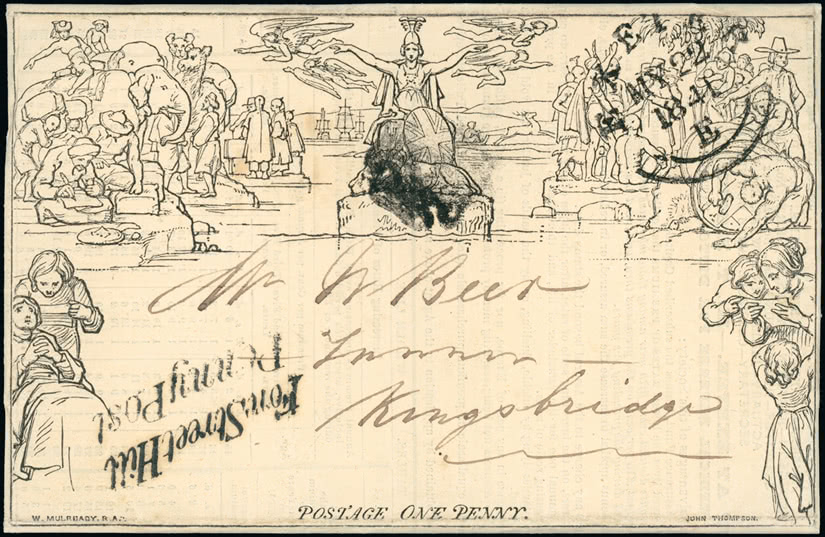 MY 22
1841
E
Mr W Beer
Tanner
Kingsbridge
Fore Street Hill
Penny Post
POSTAGE ONE PENNY.
W. MULREADY. R.A.
JOHN THOMPSON.